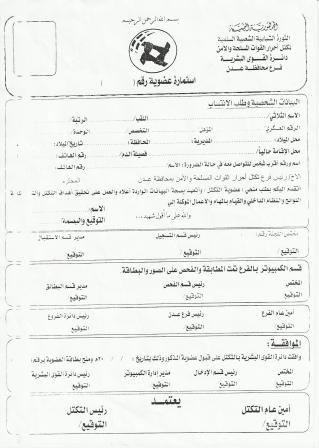 بسم الله الرحمن الرحيم
الجمهورية اليمنية
الثورة الشبابية الشعبية السلمية
تكتل أحرار القوات المسلحة والأمن
دائرة القوى البشرية
فرع محافظة عدن
استمارة عضوية رقم ( )
البيانات الشخصية وطلب الانتساب
الاسم الثلاثي: اللقب: الرتبة:
الرقم العسكري: المؤهل: التخصص: الوحدة:
محل الميلاد: المديرية: المحافظة: تاريخ الميلاد:
محل الإقامة حالياً: فصيلة الدم: رقم الهاتف:
اسم ورقم أقرب شخص للتواصل معه في حالة الضرورة: الاسم: رقم الهاتف:
الأخ/ رئيس فرع تكتل أحرار القوات المسلحة والأمن بمحافظة عدن المحترم
أتقدم إليكم بطلب منحي عضوية التكتل، وأتعهد بصحة البيانات الواردة أعلاه والعمل على تحقيق أهداف التكتل
اللوائح والنظام الداخلي والقيام بالمهام والأعمال الموكلة إلي
والله على ما أقول شهيد،،،
الاسم:
التوقيع والبصمة:
مختص اللجنة رقم: رئيس قسم التسجيل مدير قسم الاستقبال
التوقيع التوقيع التوقيع
قسم الكمبيوتر بالفرع تمت المطابقة والفحص على الصور والبطاقة
المختص رئيس قسم الفحص مدير قسم البطائق
التوقيع التوقيع التوقيع
أمين عام الفرع رئيس فرع عدن رئيس دائرة الفروع
التوقيع التوقيع التوقيع
الموافقة:
وافقت دائرة القوى البشرية بالتكتل على قبول عضوية المذكور وذلك بتاريخ: / / ٢٠م ومنح بطاقة العضوية برقم:
المختص رئيس قسم الإدخال مدير إدارة الكمبيوتر رئيس دائرة القوى البشرية
التوقيع/ التوقيع/ التوقيع/ التوقيع/
يعتمد
أمين عام التكتل رئيس التكتل
التوقيع/ التوقيع/